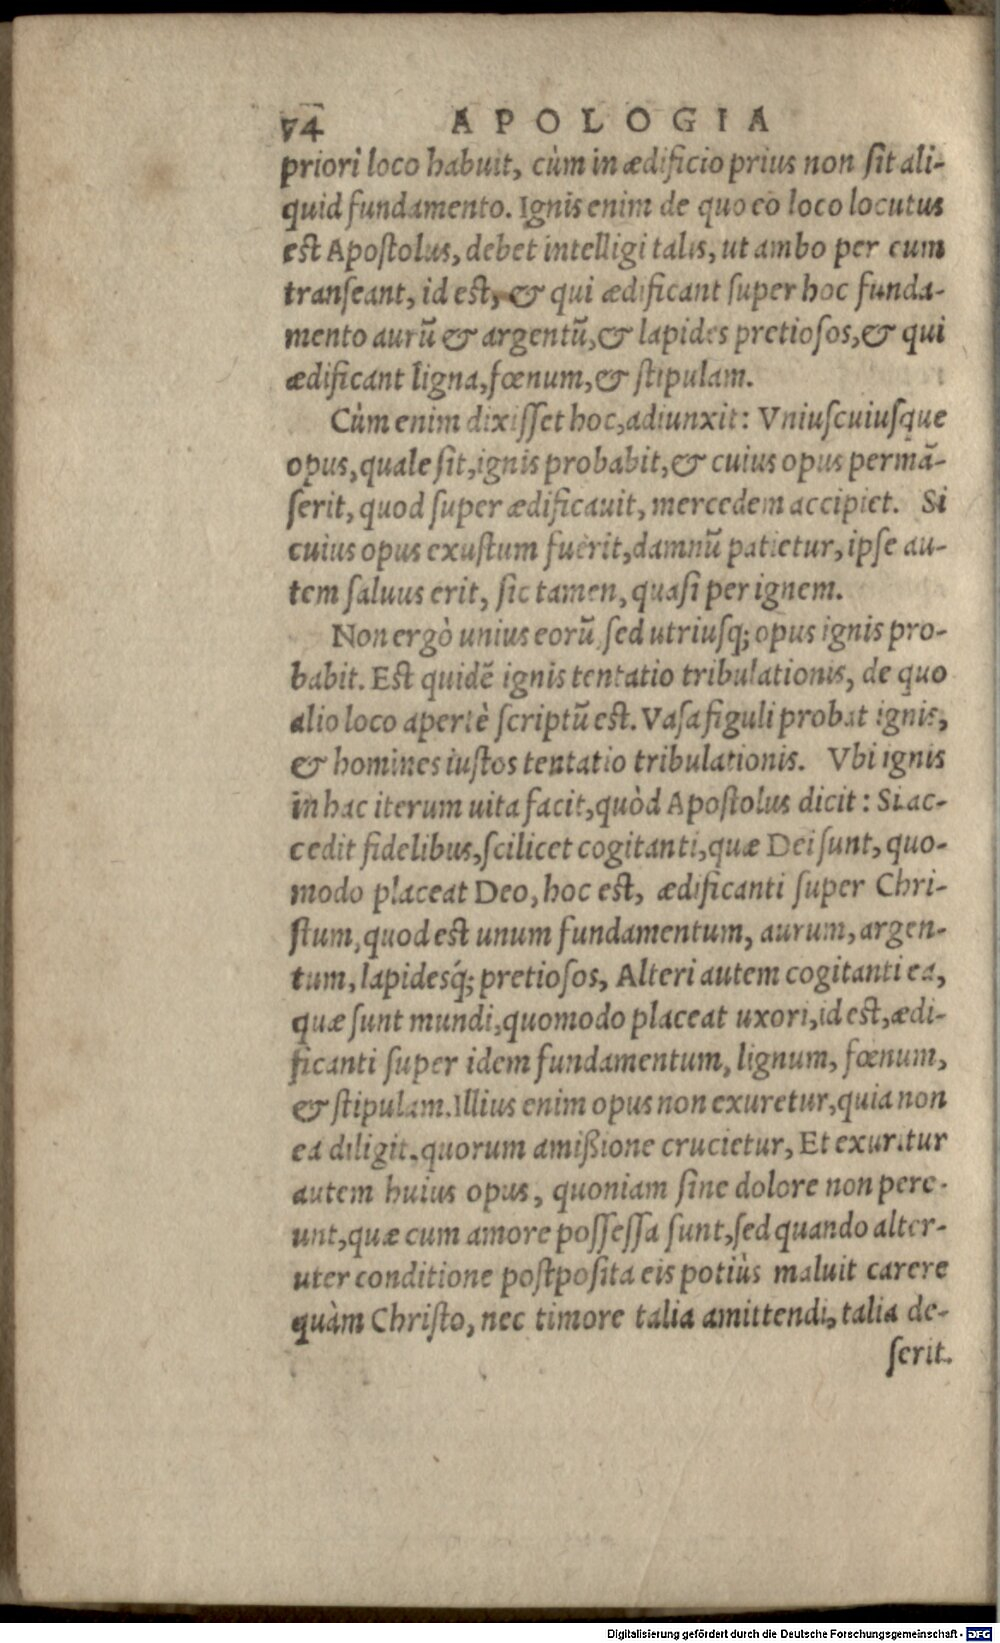 74 APOLOGIA
priori loco habuit, cùm in ædificio prius non ſit ali-
quid fundamento. Ignis enim de quo eo loco locutus
est Apoſtolus, debet intelligi talis, ut ambo per eum
tranſeant, id est, & qui ædificant ſuper hoc funda-
mento aurū & argentū, & lapides pretioſos, & qui
ædificant ligna, fœnum, & ſtipulam.
Cùm enim dixiſſet hoc, adiunxit: Vniuſcuiuſque
opus, quale ſit, ignis probabit, & cuius opus permā-
ſerit, quod ſuper ædificauit, mercedem accipiet. Si
cuius opus exuſtum fuerit, damnū patietur, ipſe au-
tem ſaluus erit, ſic tamen, quaſi per ignem.
Non ergò unius eorū, ſed utriuſq; opus ignis pro-
babit. Est quidē ignis tentatio tribulationis, de quo
alio loco apertè ſcriptū est. Vaſa figuli probat ignis,
& homines iuſtos tentatio tribulationis. Vbi ignis
in hac iterum uita facit, quòd Apoſtolus dicit: Si ac-
cedit fidelibus, ſcilicet cogitanti, quæ Dei ſunt, quo-
modo placeat Deo, hoc est, ædificanti ſuper Chri-
ſtum, quod est unum fundamentum, aurum, argen-
tum, lapidesq́; pretioſos, Alteri autem cogitanti ea,
quæ ſunt mundi, quomodo placeat uxori, id est, ædi-
ficanti ſuper idem fundamentum, lignum, fœnum,
& ſtipulam. Illius enim opus non exuretur, quia non
ea diligit. quorum amiſsione crucietur, Et exuretur
autem huius opus, quoniam ſine dolore non pere-
unt, quæ cum amore poſſeſſa ſunt, ſed quando alter-
uter conditione poſtpoſita eis potiùs maluit carere
quàm Chriſto, nec timore talia amittendi, talia de-
ſerit.
Digitalisierung gefördert durch die Deutsche Forschungsgemeinschaft - DFG